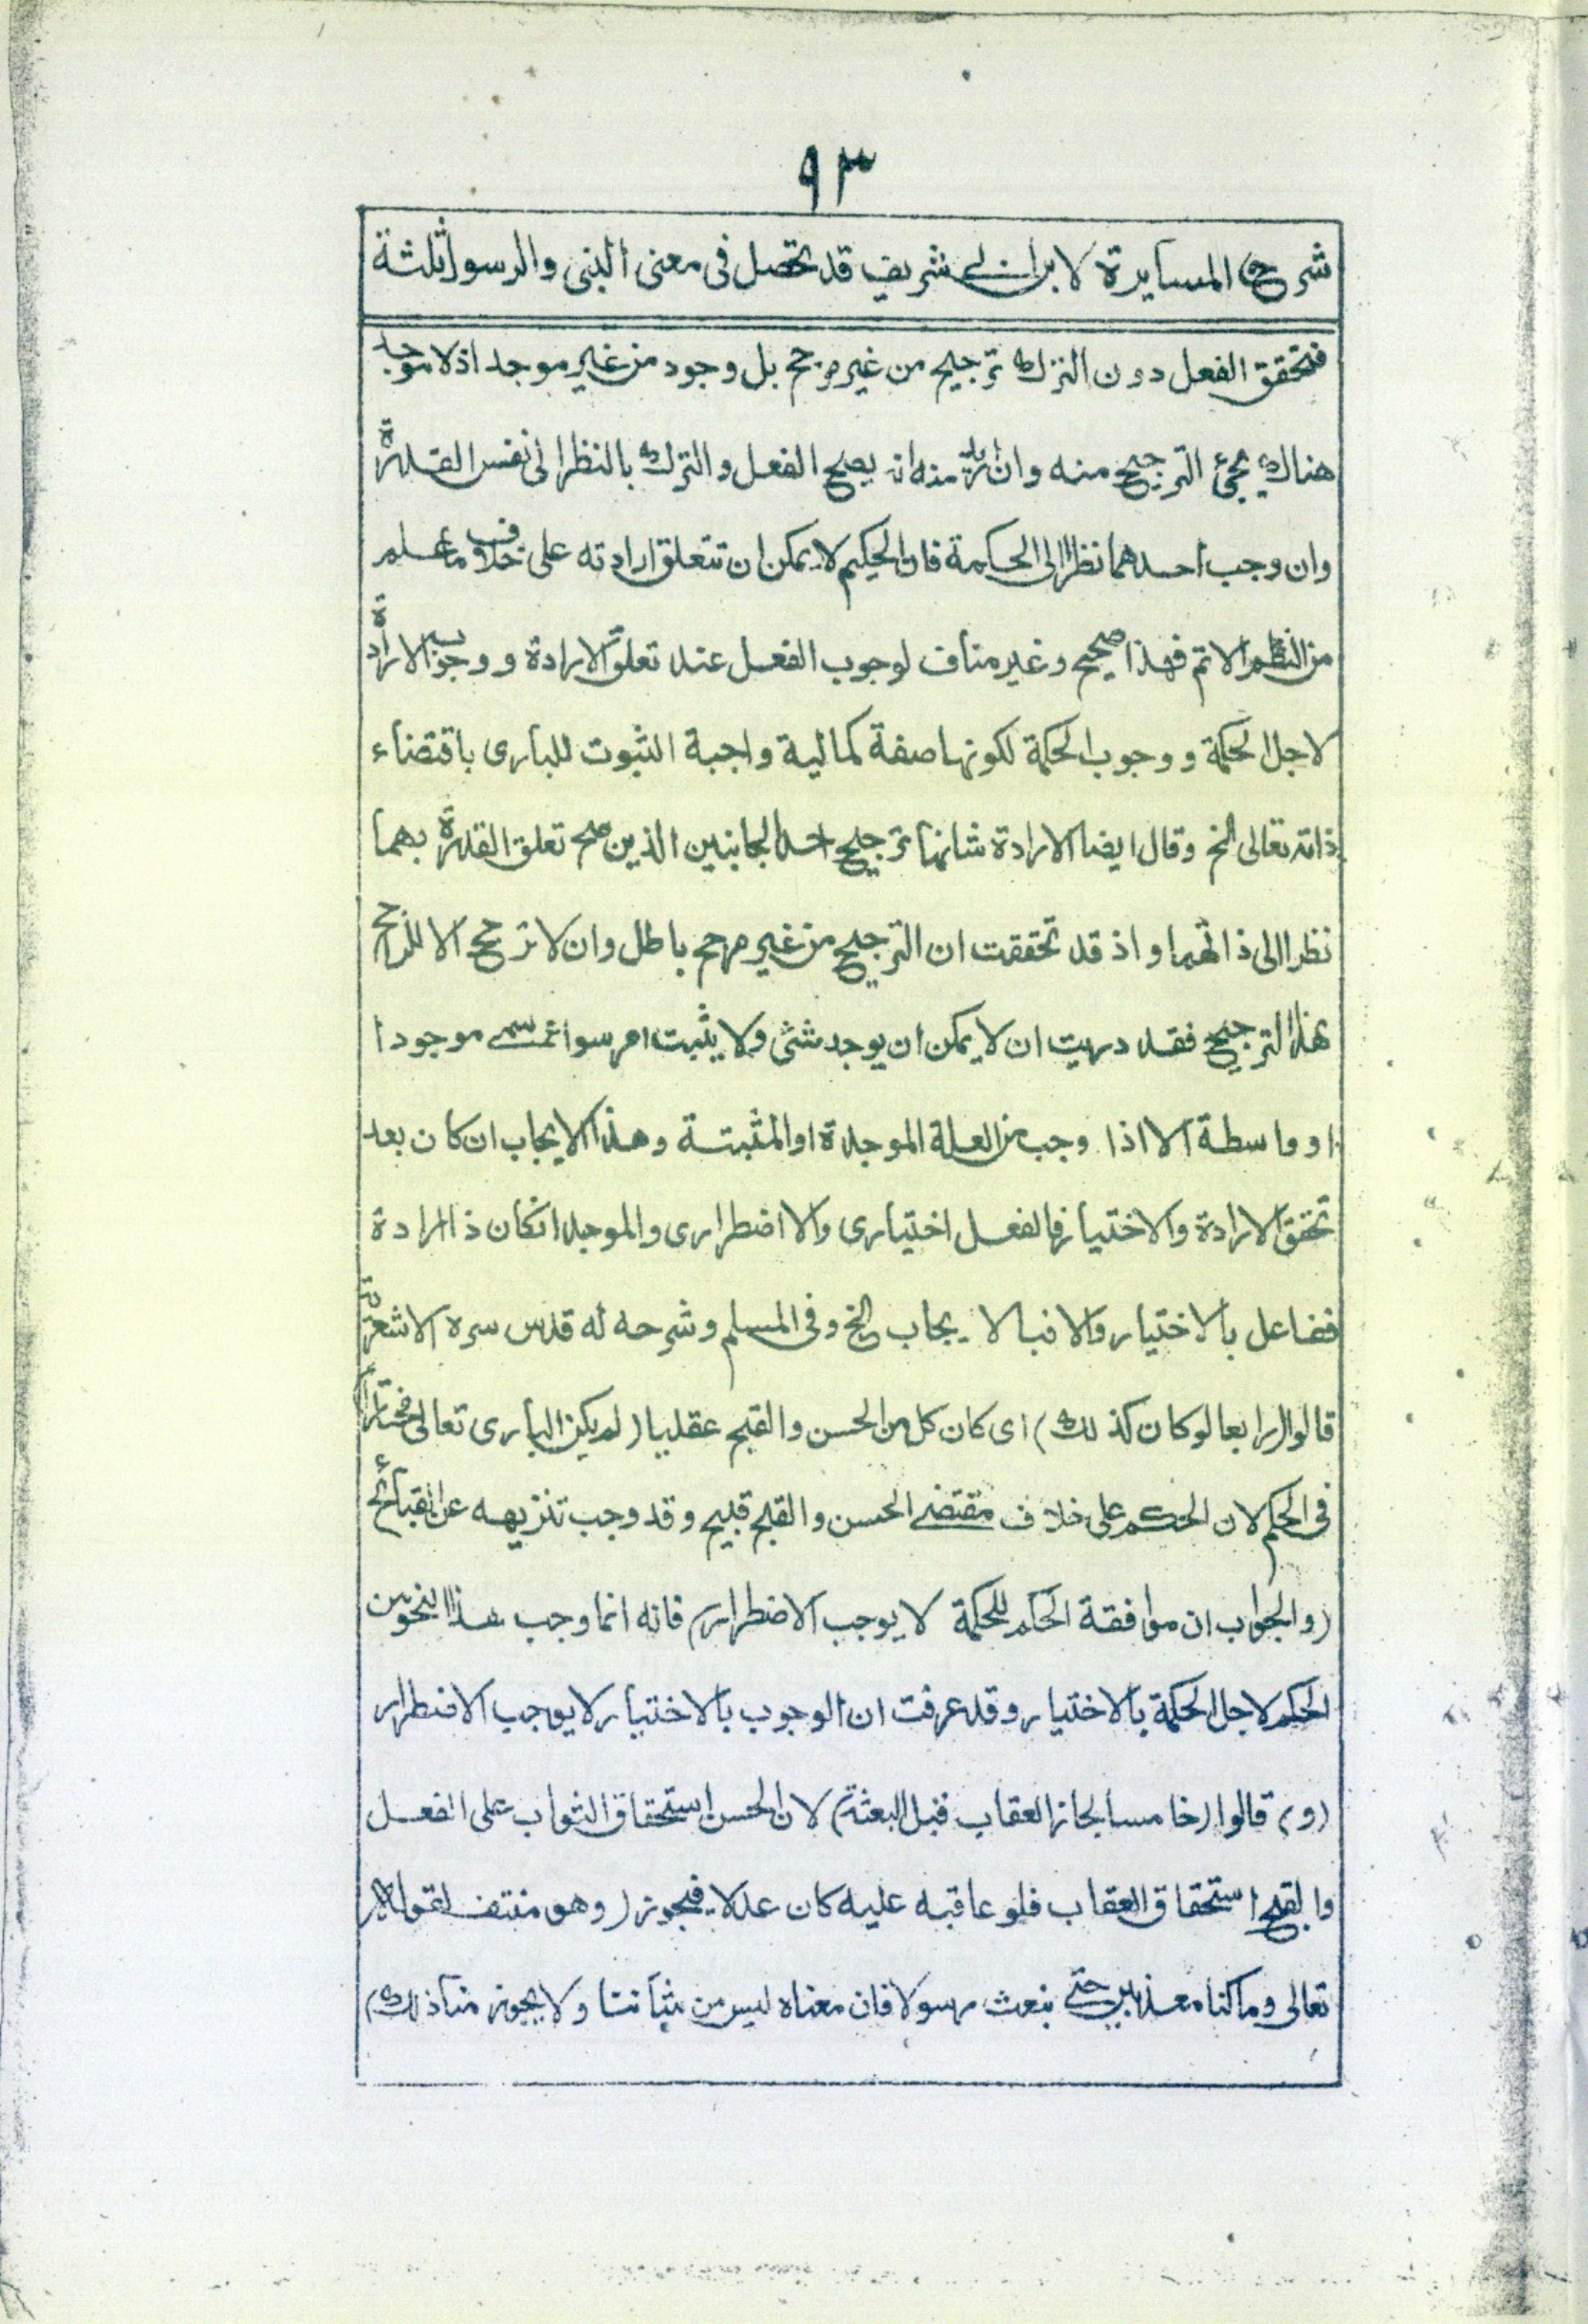 ٩٣
شرح المسايرة لابن ابى شريف قد تحصل فى معنى النبى والرسول ثلثة
فتحقق الفعل دون الترك ترجيح من غير مرجح بل وجود من غير موجد اذ لا موجد
هناك يجئ الترجيح منه وان اريد منه انه يصح الفعل والترك بالنظر الى نفس القدرة
وان وجب احدهما نظرا الى الحكمة فان الحكيم لا يمكن ان تتعلق ارادته على خلاف ما علم
من النظم الاتم فهذا صحيح وغير مناف لوجوب الفعل عند تعلق الارادة ووجوب الارادة
لاجل الحكمة ووجوب الحكمة لكونها صفة كمالية واجبة الثبوت للبارى باقتضاء
ذاته تعالى الخ وقال ايضا الارادة شانها ترجيح احد الجانبين الذين صح تعلق القدرة بهما
نظرا الى ذاتهما واذ قد تحققت ان الترجيح من غير مرجح باطل وان لا ترجح الا للراجح
بهذا الترجيح فقد دريت ان لا يمكن ان يوجد شئ ولا يثبت امر سوا تسمى موجودا
او واسطة الا اذا وجب من العلة الموجدة او المثبتة وهذا الايجاب ان كان بعد
تحقق الارادة والاختيار فالفعل اختيارى والا اضطرارى والموجد انكان ذا ارادة
ففاعل بالاختيار والا فبالايجاب الخ وفى المسلم وشرحه له قدس سره الاشعرية
قالوا (رابعا لو كان كذلك) اى كان كل من الحسن والقبح عقليا (لم يكن البارى تعالى مختارا)
فى الحكم لان الحكم على خلاف مقتضى الحسن والقبح قبيح وقد وجب تنزيهه عن القبائح
(والجواب ان موافقة الحكم للحكمة لا يوجب الاضطرار) فانه انما وجب هذا النحو من
الحكم لاجل الحكمة بالاختيار وقد عرفت ان الوجوب بالاختيار لا يوجب الاضطرار
(و) قالوا (خامسا لجاز العقاب قبل البعثة) لان الحسن استحقاق الثواب على الفعل
والقبح استحقاق العقاب فلو عاقبه عليه كان عدلا فيجوز (وهو منتف لقوله
تعالى وما كنا معذبين حتى نبعث رسولا فان معناه ليس من شاننا ولا يجوز منا ذلك)